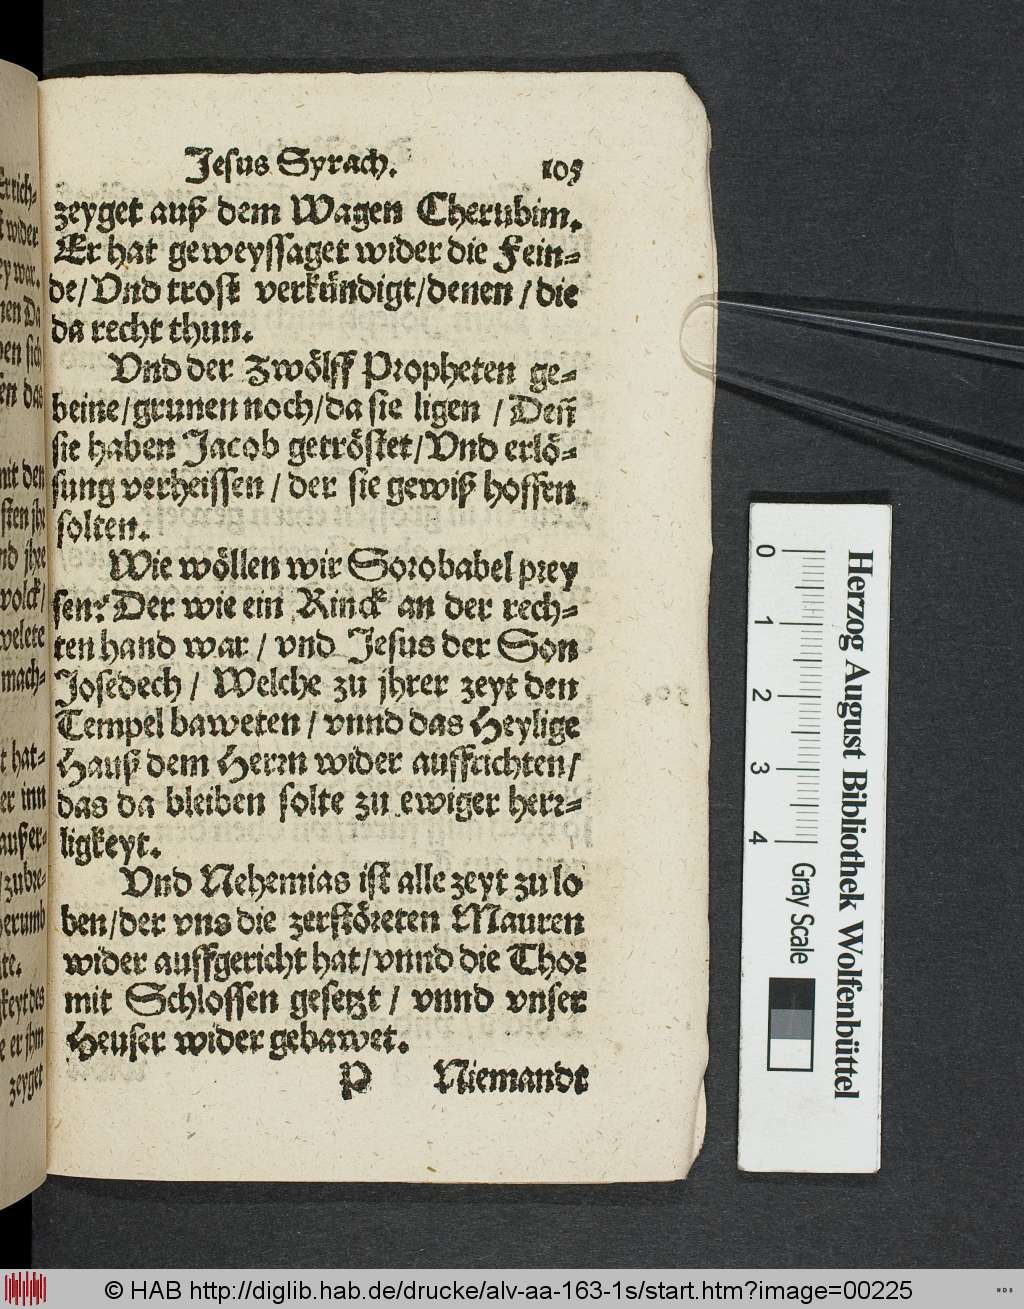 Jesus Syrach. 105
zeyget auß dem Wagen Cherubim.
Er hat geweyssaget wider die Fein-
de/Vnd trost verkündigt/denen/die
da recht thun.
Vnd der Zwölff Propheten ge-
beine/grunen noch/da sie ligen/Deñ
sie haben Jacob getröstet/Vnd erlö-
sung verheissen/der sie gewiß hoffen
solten.
Wie wöllen wir Sorobabel prey
sen? Der wie ein Rinck an der rech-
ten hand war/vnd Jesus der Son
Josedech/Welche zu jhrer zeyt den
Tempel baweten/vnnd das Heylige
Hauß dem Herrn wider auffrichten/
das da bleiben solte zu ewiger herr-
ligkeyt.
Vnd Nehemias ist alle zeyt zu lo
ben/der vns die zerstöreten Mauren
wider auffgericht hat/vnnd die Thor
mit Schlossen gesetzt/vnnd vnser
Heuser wider gebawet.
P Niemandt
wider
mit den
sten jhr
nd jhre
volck/
welete
mach-
hat-
er inn
zubre-
herumb
te.
keyt des
er jhm
zeyget
0 1 2 3 4
Gray Scale
Herzog August Bibliothek Wolfenbüttel
© HAB http://diglib.hab.de/drucke/alv-aa-163-1s/start.htm?image=00225